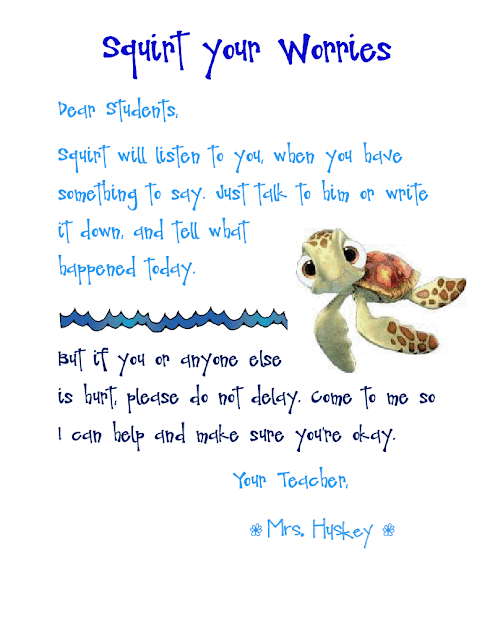 Squirt Your Worries
Dear Students,
Squirt will listen to you, when you have
something to say. Just talk to him or write
it down, and tell what
happened today.
But if you or anyone else
is hurt, please do not delay. Come to me so
I can help and make sure you're okay.
Your Teacher,
❀Mrs. Huskey ❀